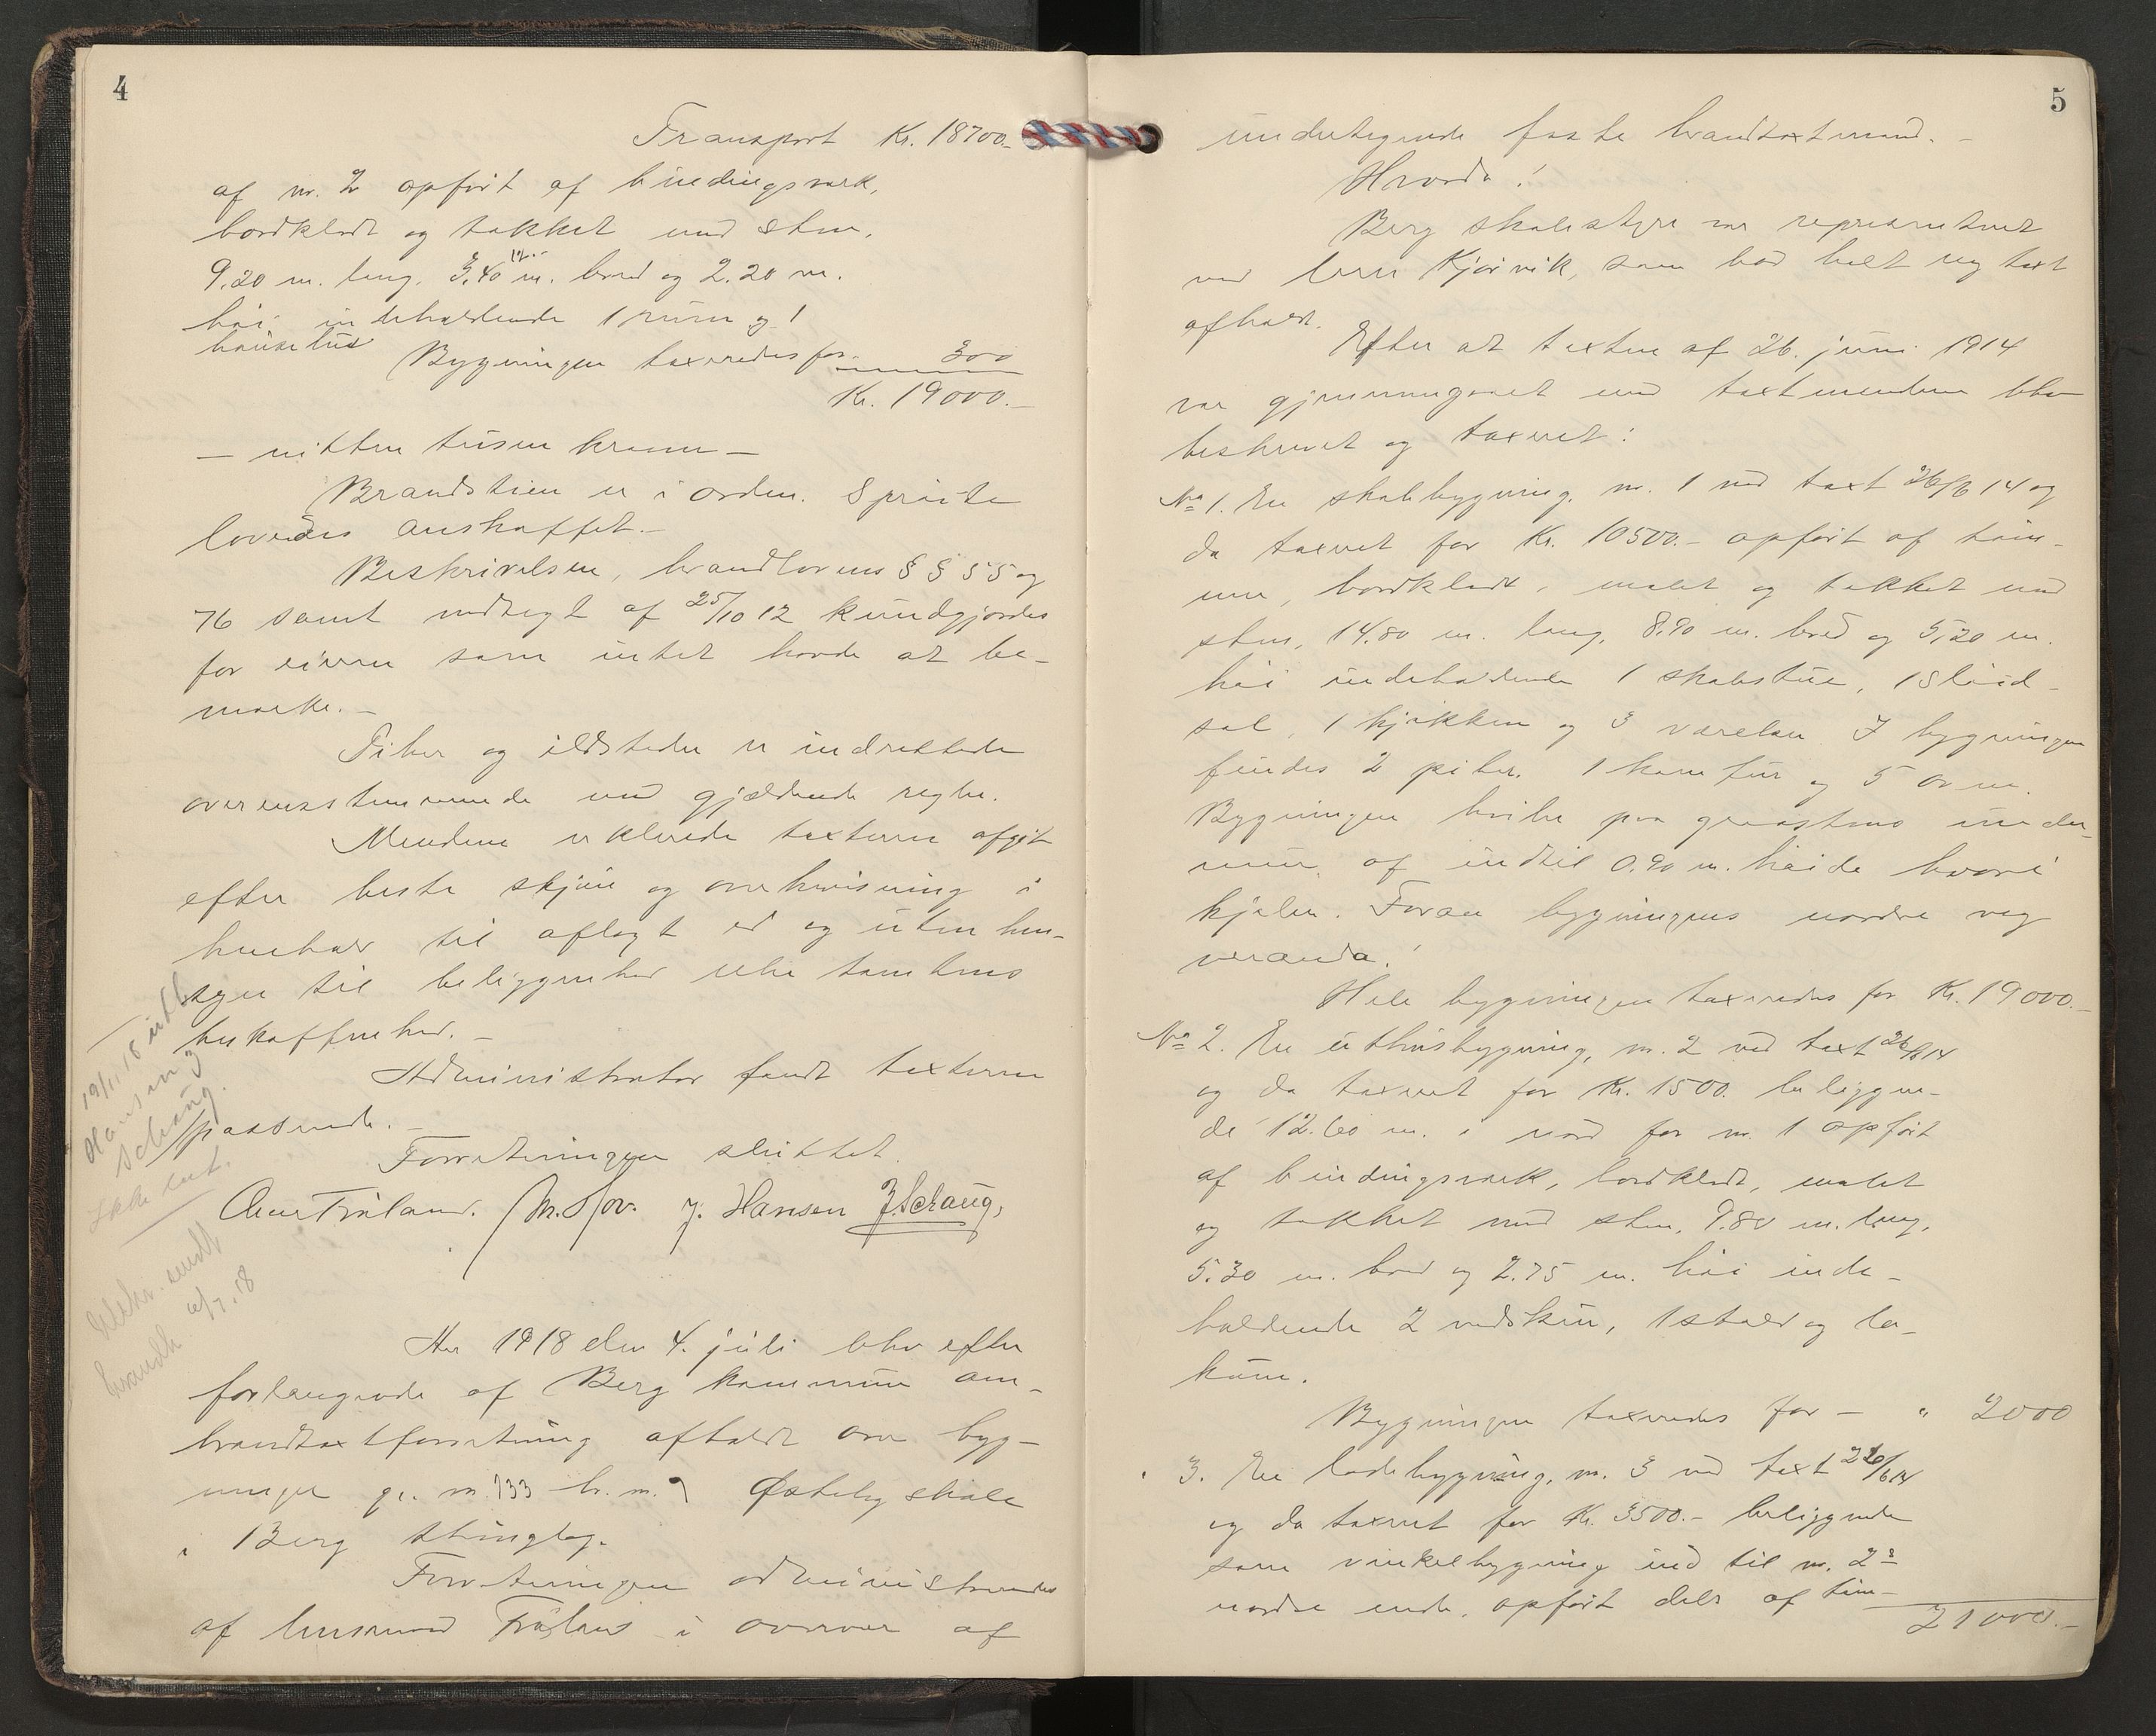 4
Transport Kr. 18700.-
af nr. 2 opført af bindingsverk,
bordklædt og tækket med sten.
9.20 m. lang, 3.40 m. bred og 2.20 m.
høi indeholdende 1 rum og 1
hønsehus
Bygningen taxeredes for 300
Kr. 19000.-
— nitten tusen kroner —
Brandstien er i orden. Sprøite
lovedes anskaffet.-
Beskrivelsen, brandlovens § § 55 og
76 samt vedtægt af 25/10 12 kundgjordes
for eieren som intet havde at be-
merke.-
Piber og ildsteder er indrettede
overensstemmende med gjældende regler.
Mendene erklærede taxterne afgit
efter beste skjøn og overbevisning i
henhold til aflagt ed og uten hen-
syn til beliggenhed eller tomtens
beskaffenhed.-
Administrator fandt taxterne
passende.-
Forretningen sluttet.
M. Hov. J. Hansen J. Schaug.
19/11.18 utb
Hansen og
Schaug.
brandk 6/7.18
Aar 1918 den 4. juli blev efter
forlangende af Berg kommune om-
brandtaxtforretning afholdt over byg-
ninger gr. nr. 133 br. nr. 7 Østeby skole
i Berg thinglag.
Forretningen administreredes
af lensmand Trøland i overvær af
5
undertegnede faste brandtaxtmænd.-
Hvorda!
Berg skolestyre var representeret
ved Kjørvik, som bad helt ny taxt
afholdt.
Efter at taxten af 26. juni 1914
var gjennemgaaet med taxtmendene blev
beskrevet og taxeret:
No 1. En skolebygning, nr. 1 ved taxt 26/6 14 og
da taxeret for Kr. 10500.- opført af tøm-
mer, bordklædt, malet og tækket med
sten, 14.80 m. lang, 8.90 m. bred og 5.20 m.
høi indeholdende 1 skolestue, 1 sløid-
sal, 1 kjøkken og 3 værelser I bygningen
findes 2 piber. 1 komfur og 5 ovne.
Bygningen hviler paa graastens under-
mur af indtil 0.90 m. høide hvori
kjelder. Foran bygningens nordre veg
veranda!
Hele bygningen taxeredes for Kr. 19000.-
No 2. En uthusbygning, nr. 2 ved taxt 26/6 14
og da taxeret for Kr. 1500. beliggen-
de 12.60 m. i nord for nr. 1 opført
af bindingsverk, bordklædt, malet
og tækket med sten, 9.80 m. lang,
5.30 m. bred og 2.75 m. høi inde-
holdende 2 vedskur, 1 stald og la-
kum.
Bygningen taxeredes for — " 2000
" 3. En ladebygning, nr. 3 ved taxt 26/6 14
og da taxeret for Kr. 3500.- beliggende
som vinkelbygning ind til nr. 2s
nordre ende, opført dels af tøm-
21000.-